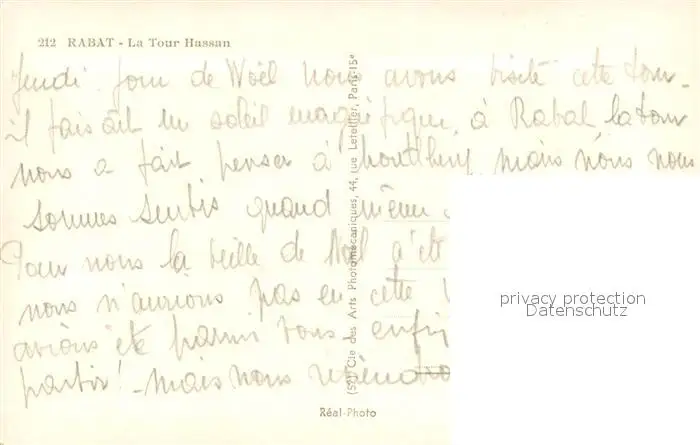 212 RABAT - La Tour Hassan
Jeudi. Jour de Noël nous avons visité cette tour -
il faisait un soleil magnifique, à Rabat la tour
nous a fait penser à mais nous nous
sommes sentis quand même
Pour nous la veille de Noël a été
nous n'aurions pas eu cette
avions été parmi vous enfin
partir! - mais nous
(52) Cie des Arts Photomécaniques, 44, rue Letellier, Paris-15e
Réal-Photo
privacy protection
Datenschutz